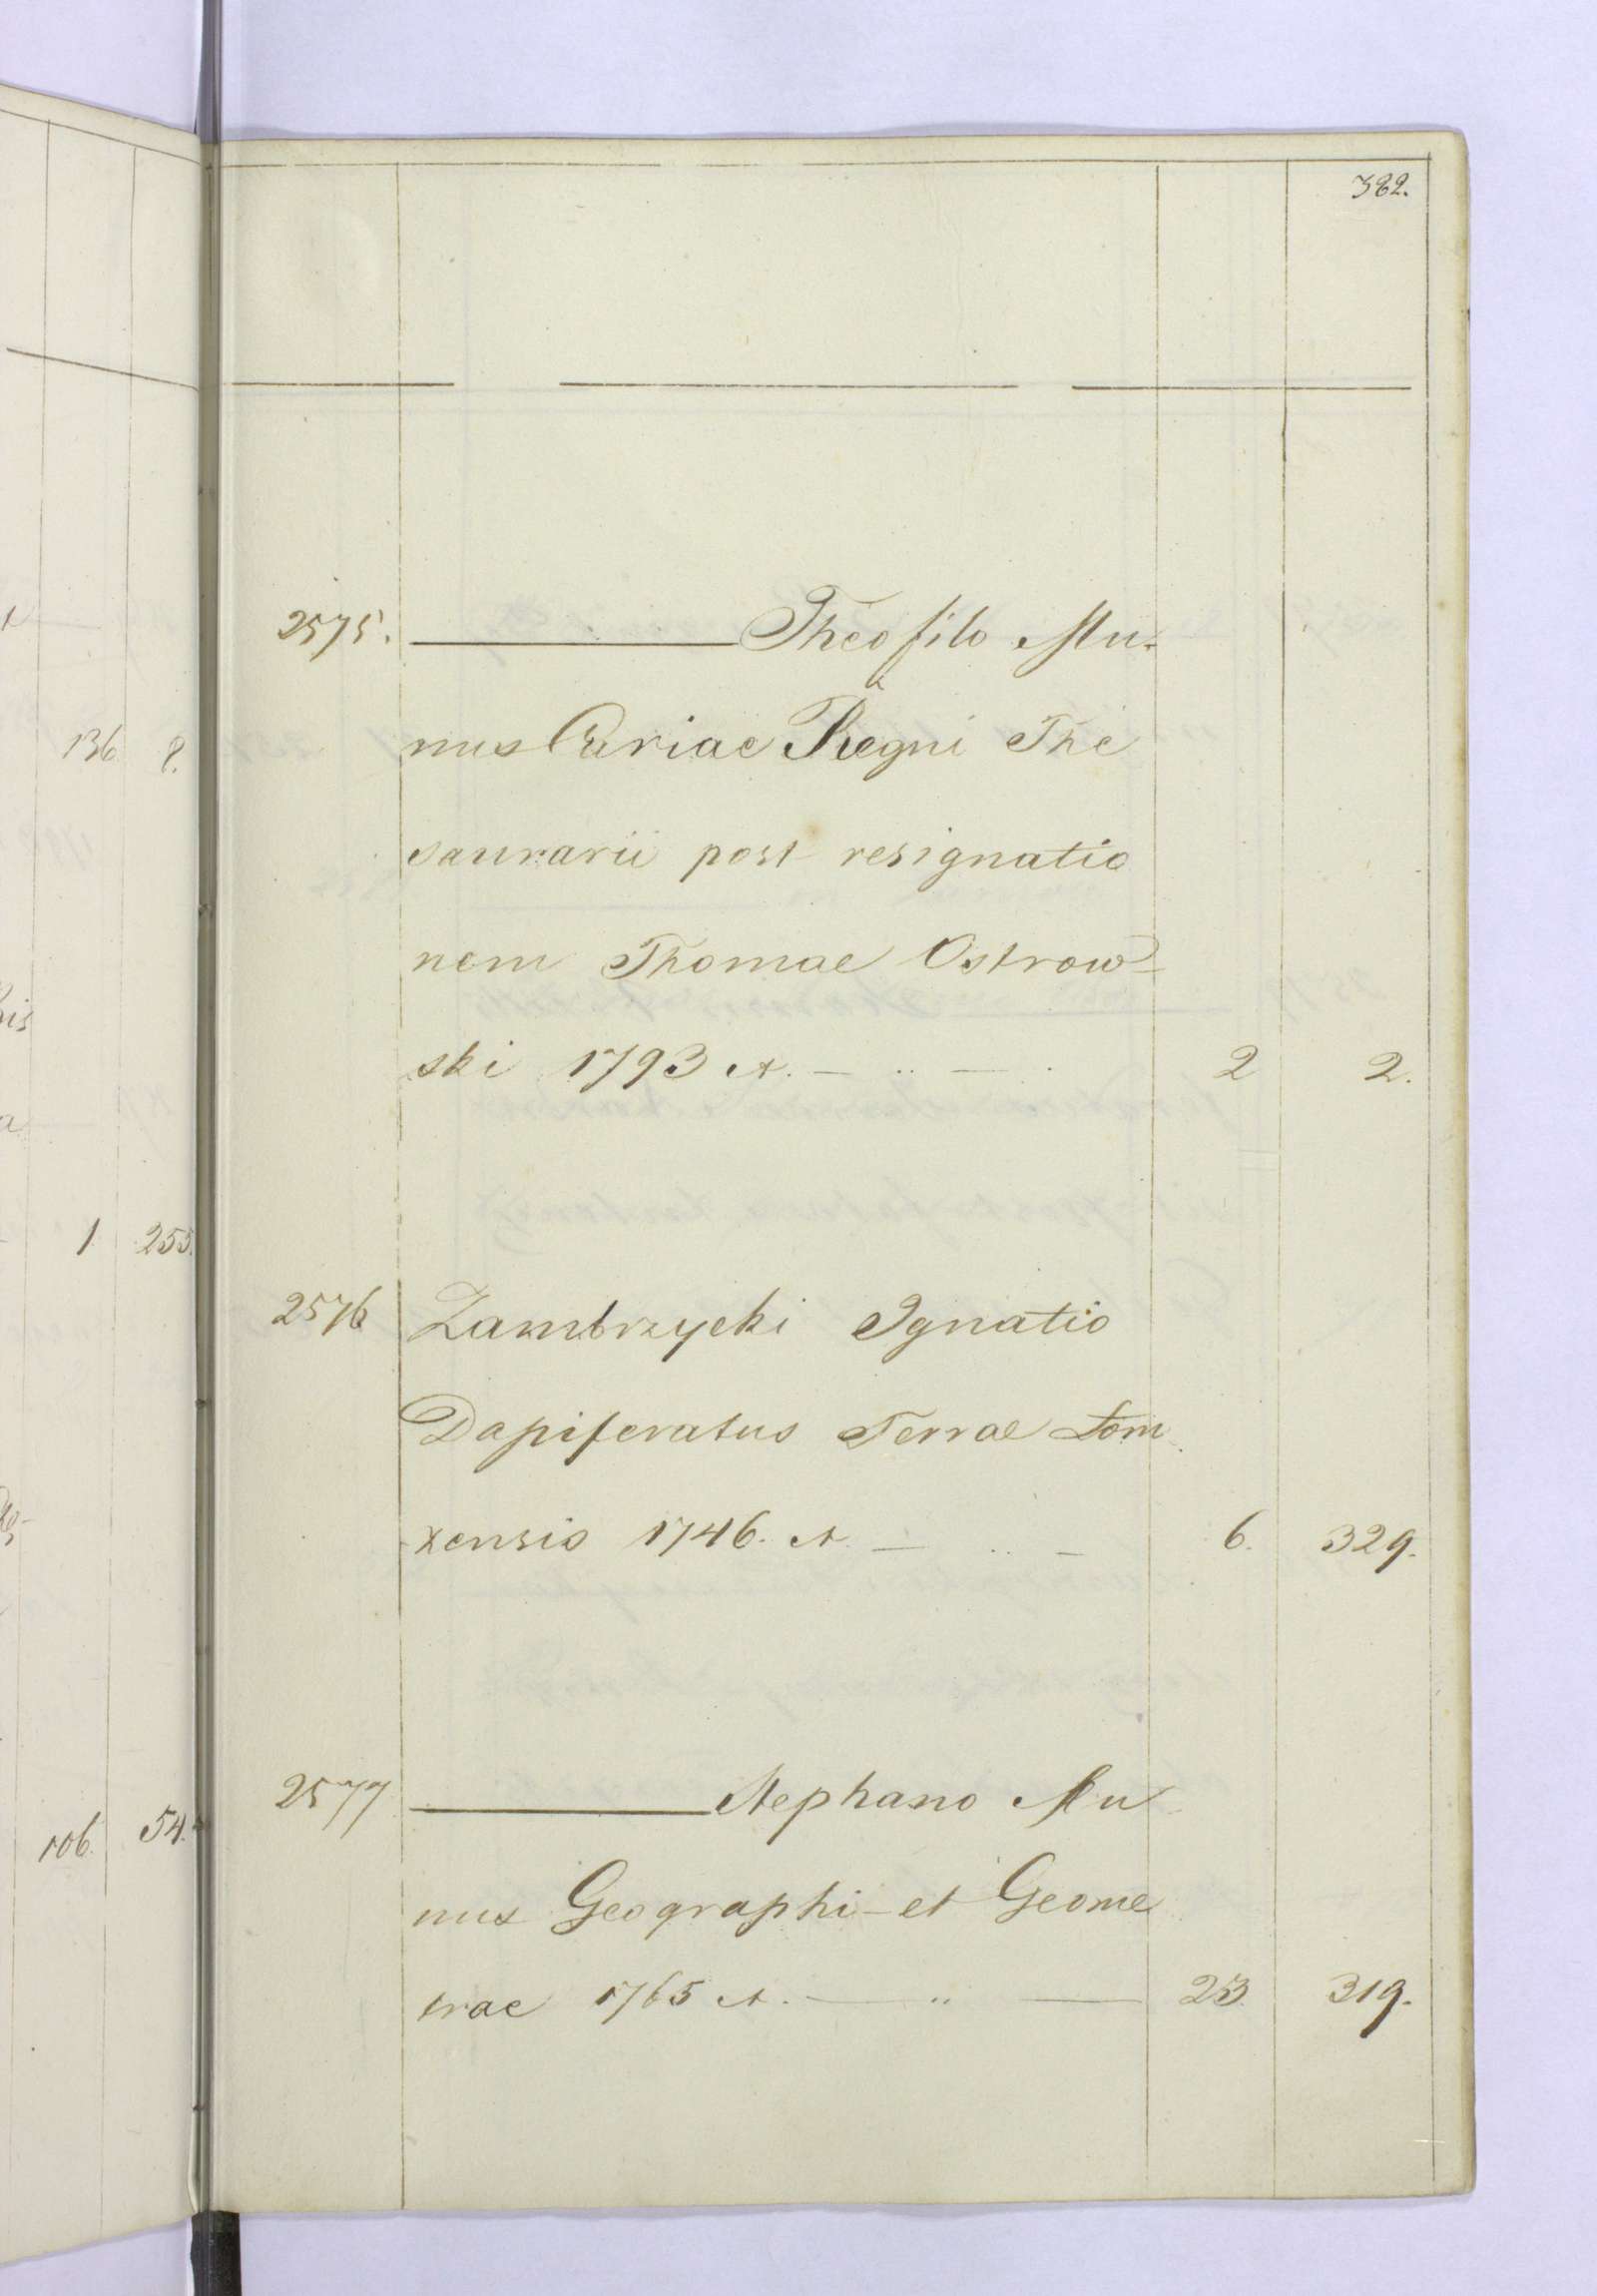 382.
2575. ——— Theofilo Mu-
nus Curiae Regni The
saurarii post resignatio
nem Thomae Ostrow-
ski 1793 A. — .. — . 2 2.
2576 Zambrzycki Ignatio
Dapiferatus Terrae Łom
zensis 1746. A. — .. — 6. 329.
2577 ——— Stephano Mu
nus Geographi et Geome
trae 1765 A. — .. — 23 319.
136 8.
1 255.
106. 54.